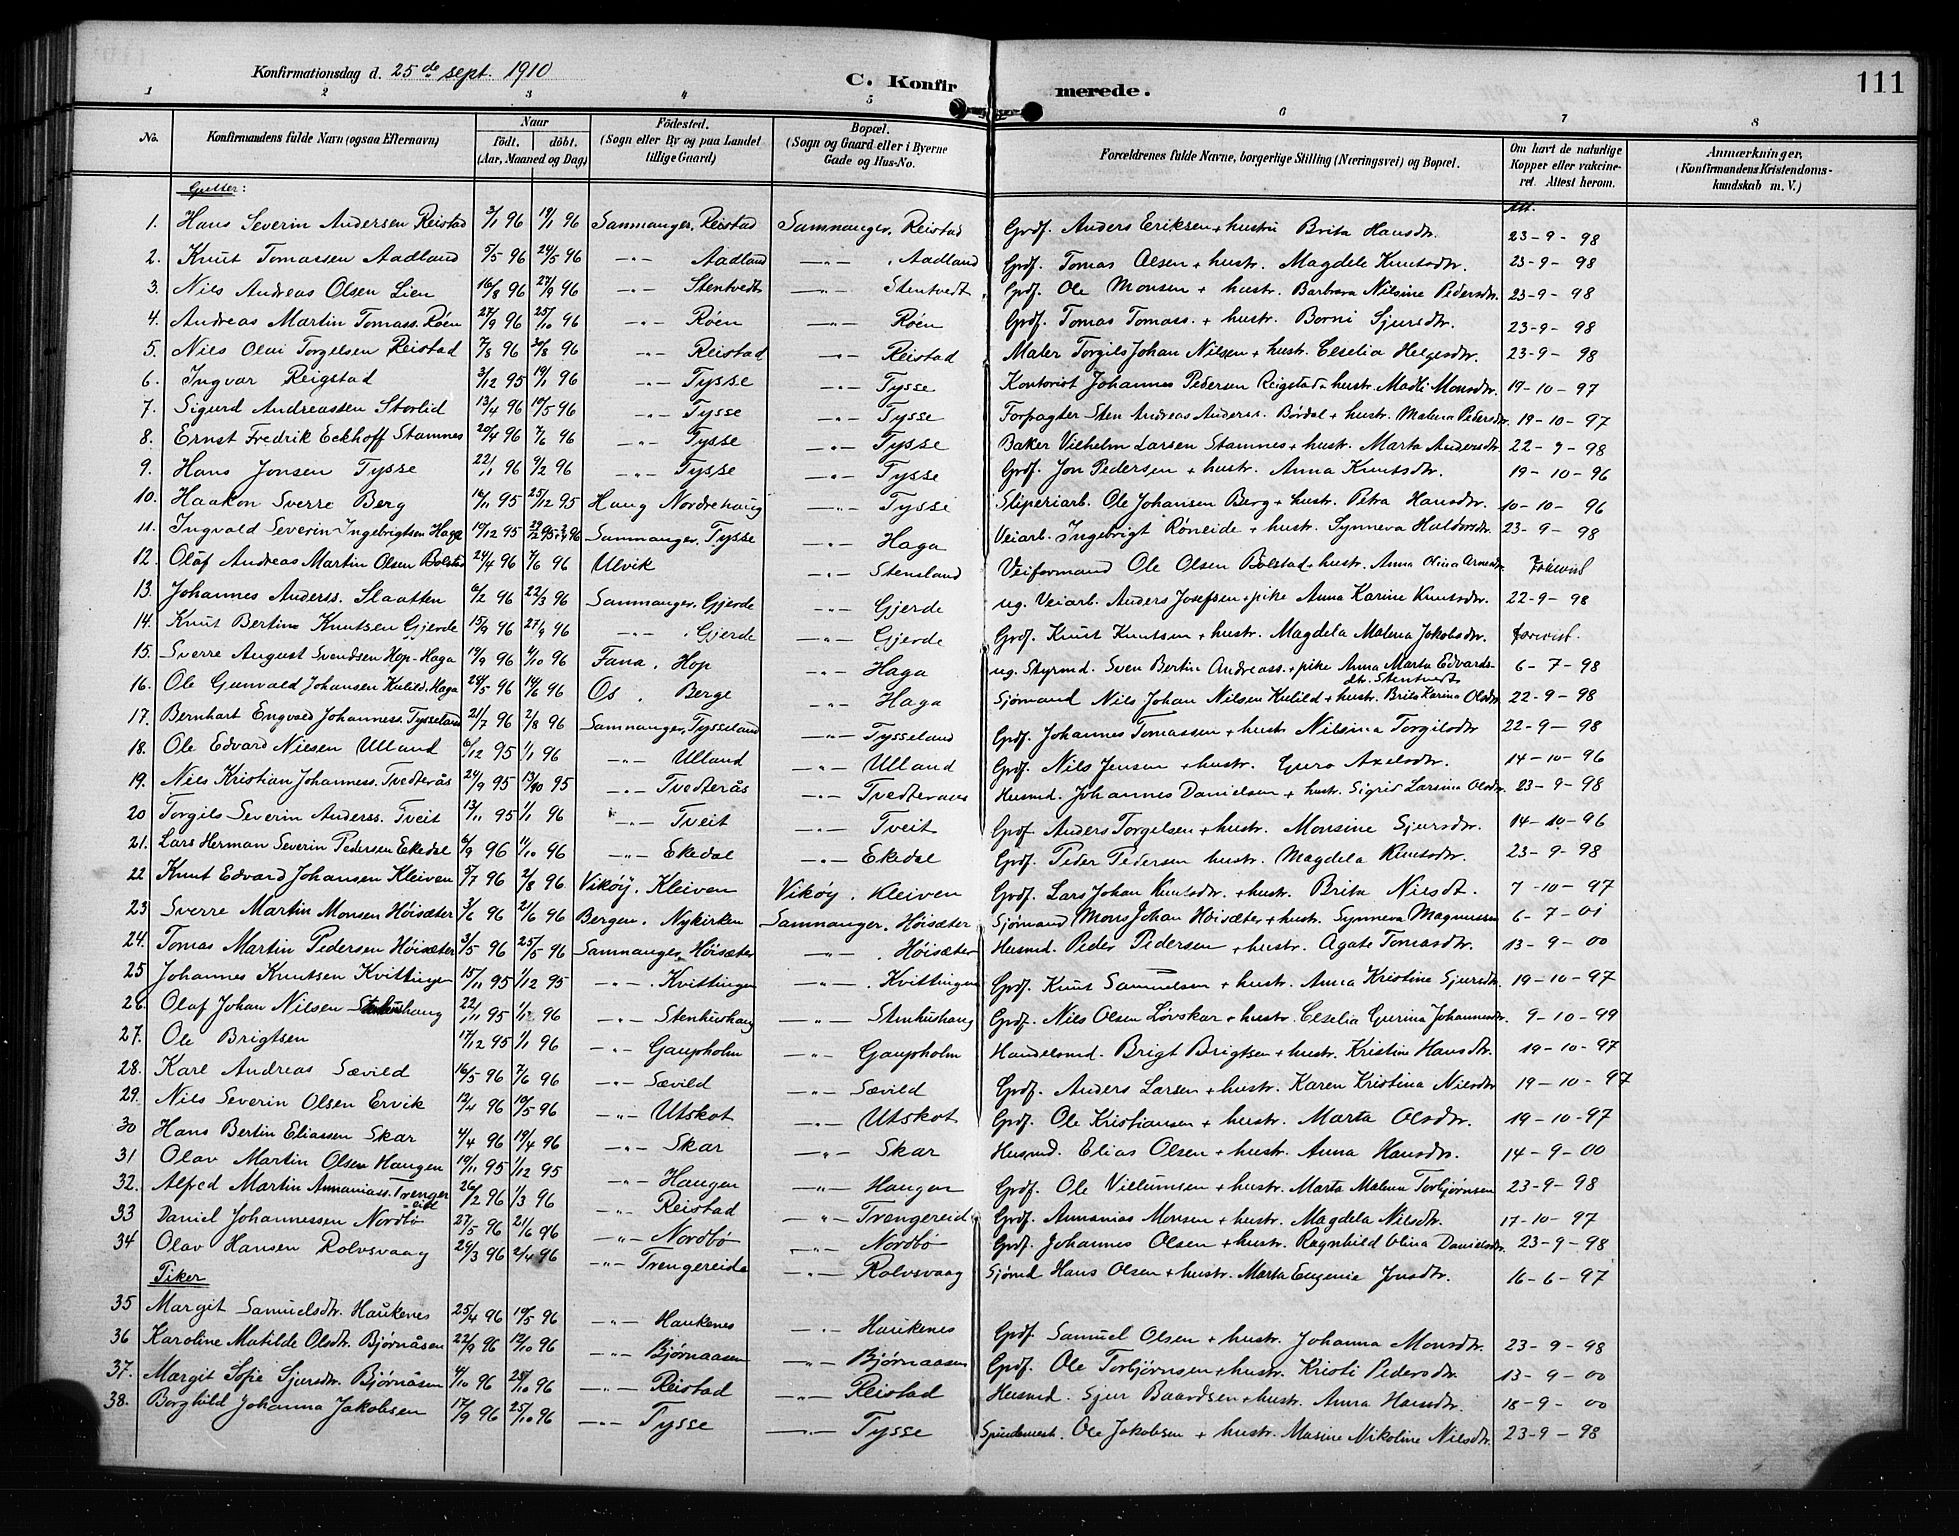 111
Konfirmationsdag d. 25de sept. 1910
C. Konfirmerede.
1 2 3 4 5 6 7 8
No. Konfirmandens fulde Navn (ogsaa Efternavn) Naar født. døbt. (Aar, Maaned og Dag) Fødested. (Sogn eller By og paa Landet tillige Gaard) Bopæl. (Sogn og Gaard eller i Byerne Gade og Hus-No. Forældrenes fulde Navne, borgerlige Stilling (Næringsvei) og Bopæl. Om havt de naturlige Kopper eller vakcineret. Attest herom. Anmærkninger. (Konfirmandens Kristendomskundskab m. V.)
Gutter:
1. Hans Severin Andersen Reistad 3/1 96 19/1 96 Samnanger, Reistad Samnanger, Reistad Grdf. Anders Eriksen + hustru Brita Hansdtr. 23-9-98
2. Knut Tomassen Aadland 5/5 96 24/5 96 -"- Aadland -"- Aadland Grdf. Tomas Olsen + hustr. Magdele Knutsdtr. 23-9-98
3. Nils Andreas Olsen Lien 16/8 96 27/9 96 -"- Stentvedt -"- Stentvedt Grdf. Ole Monsen + hustr. Barbara Nilsine Pedersdtr. 23-9-98
4. Andreas Martin Tomass. Røen 27/9 96 25/10 96 -"- Røen -"- Røen Grdf. Tomas Tomass. + hustr. Borni Sjursdtr. 23-9-98
5. Nils Olai Torgelsen Reistad 7/8 96 30/8 96 -"- Reistad -"- Reistad Maler Torgils Johan Nilsen + hustr. Cecelia Helgesdtr. 23-9-98
6. Ingvar Reigstad 3/12 95 19/1 96 -"- Tysse -"- Tysse Kontorist Johannes Pedersen Reigstad + hustr. Madli Monsdtr. 19-10-97
7. Sigurd Andreassen Storlid 13/4 96 10/5 96 -"- Tysse -"- Tysse Forpagter Sten Andreas Anderss. Børdal + hustr. Malena Pedersdtr. 19-10-97
8. Ernst Fredrik Eckhoff Stamnes 20/4 96 7/6 96 -"- Tysse -"- Tysse Baker Vilhelm Larsen Stamnes + hustr. Marta Andersdtr. 22-9-98
9. Hans Jonsen Tysse 22/1 96 9/2 96 -"- Tysse -"- Tysse Grdf. Jon Pedersen + hustr. Anna Knutsdtr. 19-10-96
10. Haakon Sverre Berg 14/11 95 25/12 95 Haug Nordrehaug -"- Tysse Sliperiarb. Ole Johansen Berg + hustr. Petra Hansdtr. 10-10-96
11. Ingvald Severin Ingebrigtsen Haga 10/12 95 Samnanger, Tysse -"- Haga Veiarb. Ingebrigt Røneide + hustr. Synneva Haldorsdtr. 23-9-98
12. Olaf Andreas Martin Olsen Bolstad 24/4 96 7/6 96 Ulvik -"- Stensland Veiformand Ole Olsen Bolstad + hustr. Anna Olina Arnesdtr.
13. Johannes Anderss. Slaatten 6/2 96 22/3 96 Samnanger, Gjerde -"- Gjerde ug. Veiarb. Anders Josefsen + pike Anna Karine Knutsdtr. 22-9-98
14. Knut Bertin Knutsen Gjerde 15/9 96 27/9 96 -"- Gjerde -"- Gjerde Grdf. Knut Knutsen + hustr. Magdela Malena Jakobsdtr. forevist.
15. Sverre August Svendsen Hop-Haga 14/9 96 4/10 96 Fana, Hop -"- Haga ug. Styrmd. Sven Bertin Andreass. + pike Anna Marta Edvardsdtr. Stentvedt 6-7-98
16. Ole Gunvald Johansen Kulild-Haga 24/5 96 14/6 96 Os, Berge -"- Haga Sjømand Nils Johan Nilsen Kulild + hustr. Brita Karina Olsdtr. 22-9-98
17. Bernhart Engvald Johanness. Tysseland 21/7 96 2/8 96 Samnanger, Tysseland -"- Tysseland Grdf. Johannes Tomassen + hustr Nilsina Torgilsdtr 22-9-98
18. Ole Edvard Nilsen Ulland 6/12 95 1/1 96 -"- Ulland -"- Ulland Grdf. Nils Jensen + hustr. Guro Axelsdtr. 14-10-96
19. Nils Kristian Johanness. Tvedterås 24/9 95 13/10 95 -"- Tvedterås -"- Tvedteraas Husmd. Johannes Danielsen + hustr. Sigrid Larsina Olsdtr. 23-9-98
20 Torgils Severin Anderss. Tveit 13/11 95 1/1 96 -"- Tveit -"- Tveit Grdf Anders Torgelsen + hustr. Monsine Sjursdtr. 14-10-96
21. Lars Herman Severin Pedersen Ekedal 6/9 96 11/10 96 -"- Ekedal -"- Ekedal Grdf. Peder Pedersen hustr. Magdela Knutsdtr. 23-9-98
22 Knut Edvard Johansen Kleiven 5/7 96 2/8 96 Vikøy, Kleiven Vikøy, Kleiven Grdf. Lars Johan Knutsdtr. + hustr. Brita Nilsdt. 7-10-97
23 Sverre Martin Monsen Høisæter 3/6 96 21/6 96 Bergen, Nykirken Samnanger, Høisæter Sjømand Mons Johan Høisæter + hustr. Synneva Magnussen 6-7-01
24. Tomas Martin Pedersen Høisæter 3/5 96 25/5 96 Samnanger, Høisæter -"- Høisæter Husmd. Peder Pedersen + hustr. Agate Tomasdtr. 13-9-00
25 Johannes Knutsen Kvittingen 15/11 95 1/12 95 -"- Kvittingen -"- Kvittingen Grdf. Knut Samuelsen + hustr. Anna Kristine Sjursdtr. 19-10-97
26. Olaf Johan Nilsen Stenhushaug 22/11 95 1/12 96 -"- Stenhushaug -"- Stenhushaug Grdf. Nils Olsen Løvskar + hustr. Cecelia Gurina Johannesdtr. 9-10-99
27. Ole Brigtsen 17/12 95 1/1 96 -"- Gaupholm -"- Gaupholm Handelsmd. Brigt Brigtsen + hustr. Kristine Hansdtr. 19-10-97
28. Karl Andreas Sævild 16/5 96 7/6 96 -"- Sævild -"- Sævild Grdf. Anders Larsen + hustr. Karen Kristina Nilsdtr 19-10-97
29. Nils Severin Olsen Ervik 12/4 96 10/5 96 -"- Utskot -"- Utskot Grdf. Ole Kristiansen + hustr. Marta Olsdtr. 19-10-97
30 Hans Bertin Eliassen Skar 4/4 96 19/4 96 -"- Skar -"- Skar Husmd. Elias Olsen + hustr. Anna Hansdtr. 14-9-00
31 Olav Martin Olsen Haugen 10/11 95 1/12 95 -"- Haugen -"- Haugen Grdf. Ole Villumsen + hustr. Marta Malena Torbjørnsen 23-9-98
32. Alfred Martin Annaniass. Trengereid 26/2 96 1/3 96 -"- Reistad -"- Trengereid Grdf. Annanias Monsen + hustr. Magdela Nilsdtr. 17-10-97
33 Daniel Johannessen Nordbø 27/5 96 21/6 96 -"- Nordbø -"- Nordbø Grdf. Johannes Olsen + hustr. Ragnhild Olina Danielsdtr 23-9-98
34 Olav Hansen Rolvsvaag 29/3 96 2/4 96 -"- Trengereide -"- Rolvsvaag Sjømd Hans Olsen + hustr. Marta Eugenie Jonsdtr. 16-6-97
Piker
35 Margit Samuelsdtr. Haukenes 25/4 96 10/5 96 -"- Haukenes -"- Haukenes Grdf. Samuel Olsen + hustr. Johanna Monsdtr. 23-9-98
36 Karoline Matilde Olsdtr. Bjørnåsen 22/9 96 12/10 96 -"- Bjørnaasen -"- Bjørnaasen Grdf. Ole Torbjørnsen + hustr. Kristi Pedersdtr. 13-9-00
37. Margit Sofie Sjursdtr. Bjørnåsen 4/10 96 25/10 96 -"- Reistad -"- Reistad Husmd. Sjur Baardsen + hustr. Anna Hansdtr. 18-9-00
38. Borghild Johanna Jakobsen 17/9 96 25/10 96 -"- Tysse -"- Tysse Spindemest. Ole Jakobsen + hustr. Masine Nikoline Nilsdtr. 23-9-98